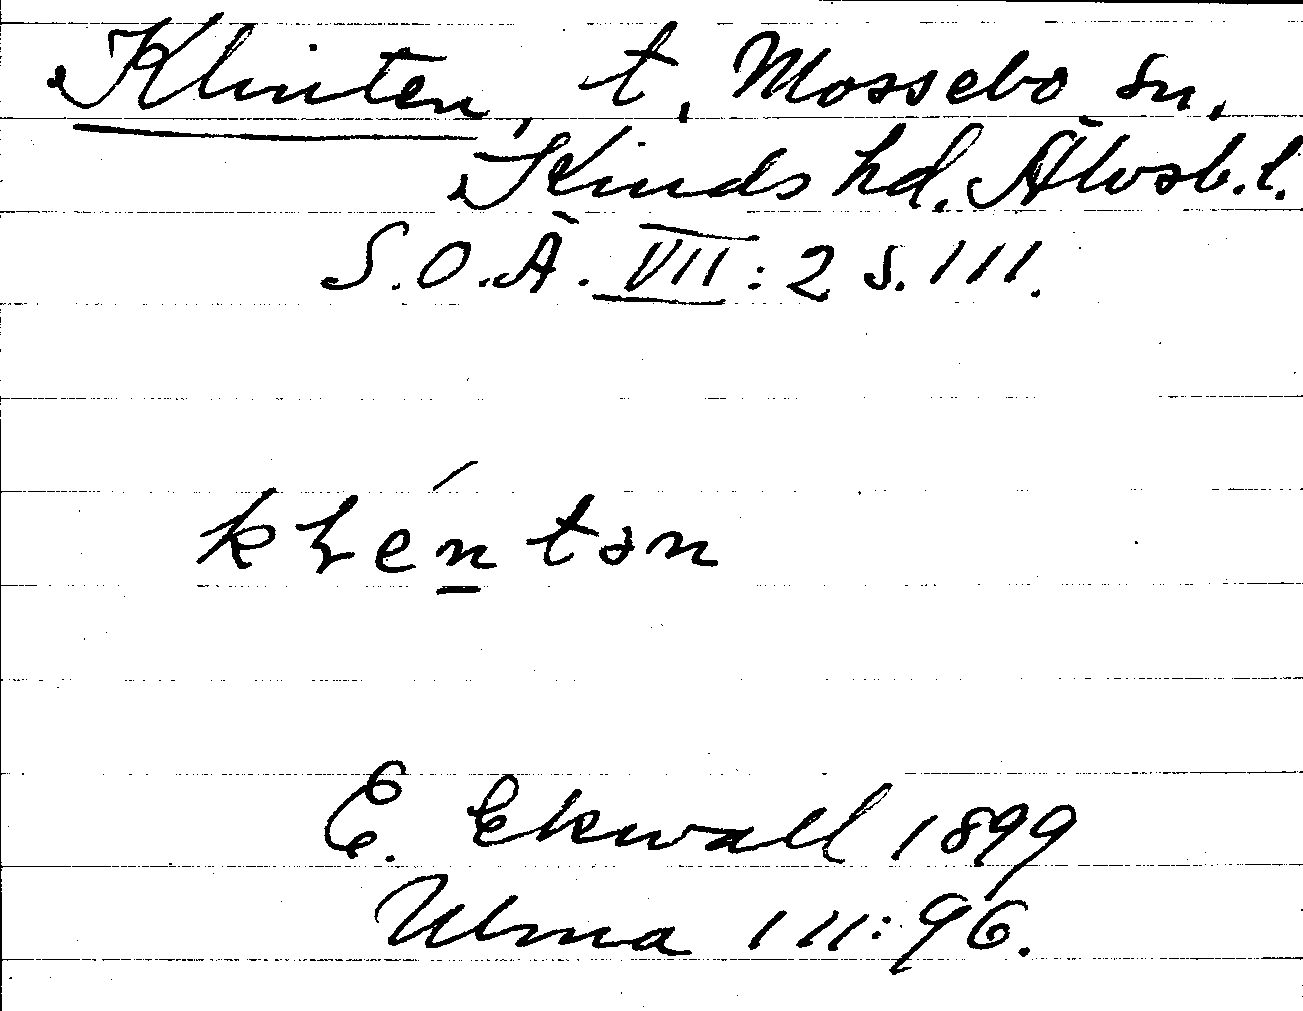 Klinten, t. Mossebo sn.
Kinds hd. Älvsb. l.
S.O.Ä. VII:2 s. 111.
kɫén̲tən
E. Ekwall 1899
Ulma 111:96.